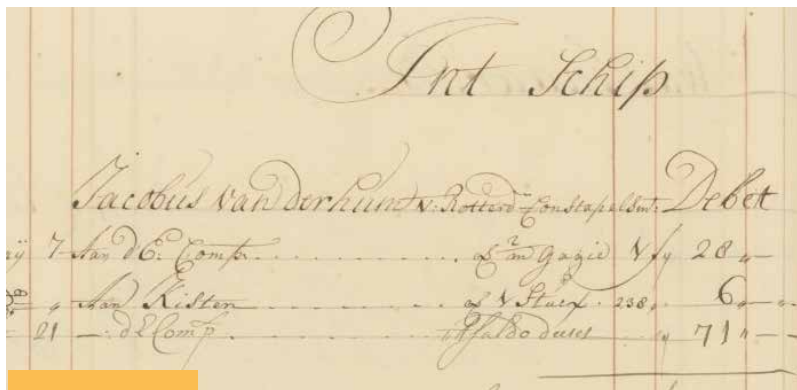 Int Schip
Jacobus van derhum v: Rotterd Constapelsmt: Debet
7 Aan dE: Comp. 2 m Gagie 28
Aan Kisten 238 6
21 dE Comp saldo deses 71